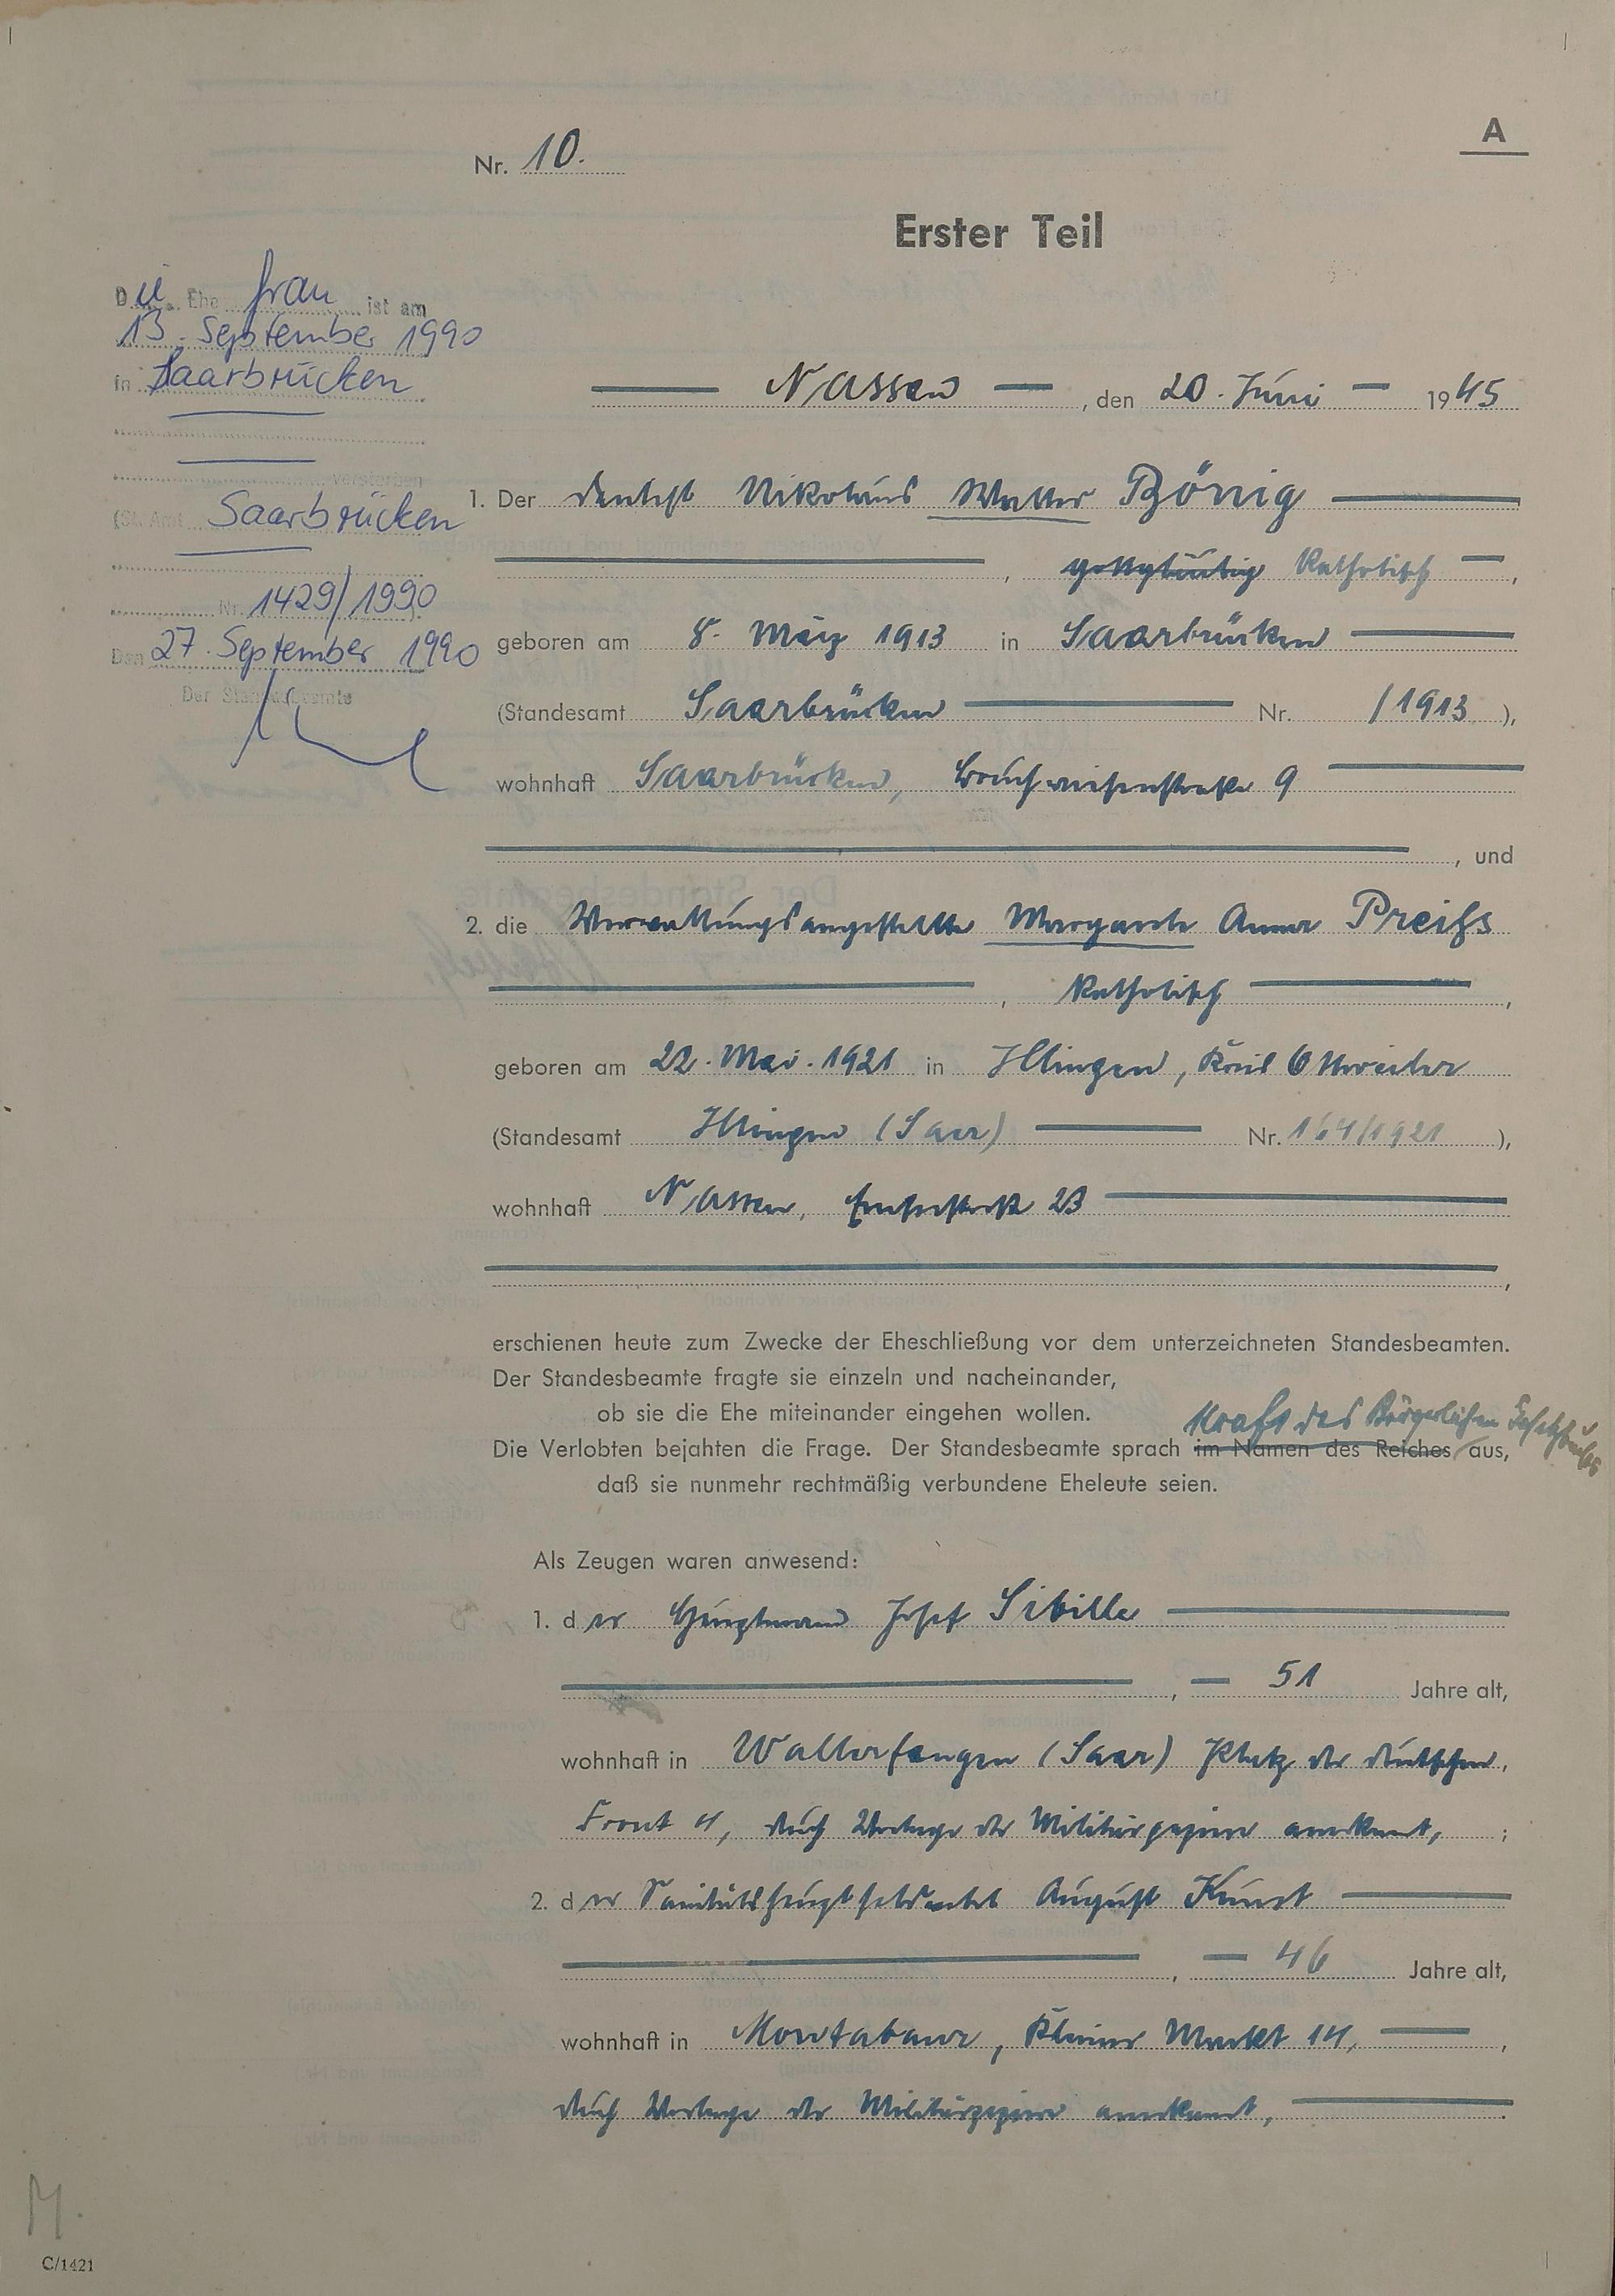 A
Nr. 10.
Erster Teil
Die Ehefrau ist am
13. September 1990
in Saarbrücken
verstorben
(St. Amt Saarbrücken
Nr. 1429/1990
Den 27. September 1990
Der Standesbeamte
Nassau, den 20. Juni 1945
1. Der Dentist Nikolaus Walter Bönig
, gottgläubig Katholisch,
geboren am 8. März 1913 in Saarbrücken
(Standesamt Saarbrücken Nr. /1913 ),
wohnhaft Saarbrücken, Bruchwiesenstraße 9
, und
2. die Verwaltungsangestellte Margarete Anna Preiß
, Katholisch,
geboren am 22. Mai. 1921 in Illingen, Kreis Ottweiler
(Standesamt Illingen (Saar) Nr. 164/1921 ),
wohnhaft Nassau, Emserstraße 23
,
erschienen heute zum Zwecke der Eheschließung vor dem unterzeichneten Standesbeamten.
Der Standesbeamte fragte sie einzeln und nacheinander,
ob sie die Ehe miteinander eingehen wollen.
Kraft des Bürgerlichen Gesetzbuches
Die Verlobten bejahten die Frage. Der Standesbeamte sprach im Namen des Reiches aus,
daß sie nunmehr rechtmäßig verbundene Eheleute seien.
Als Zeugen waren anwesend:
1. der Hauptmann Josef Sibille
, 51 Jahre alt,
wohnhaft in Wallerfangen (Saar) Platz der deutschen
Front 4, durch Vorlage der Militärpapiere anerkannt, ;
2. der Sanitätshauptfeldwebel August Kunst
, 46 Jahre alt,
wohnhaft in Montabaur, Kleiner Markt 14, ,
durch Vorlage der Militärpapiere anerkannt, .
M.
C/1421